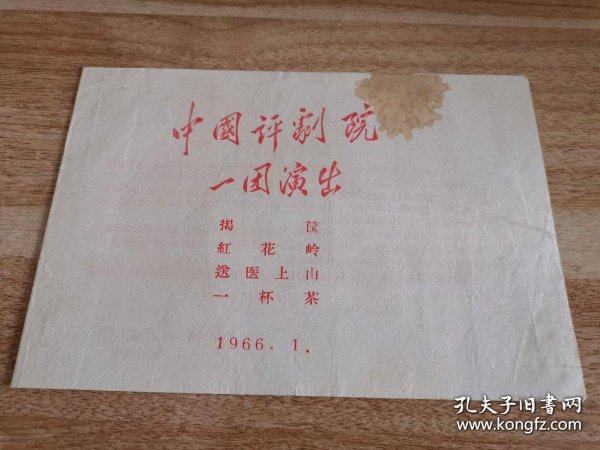 中國评剧院
一团演出
揭筐
紅花岭
送医上山
一杯茶
1966.1.
孔夫子旧书网
www.kongfz.com